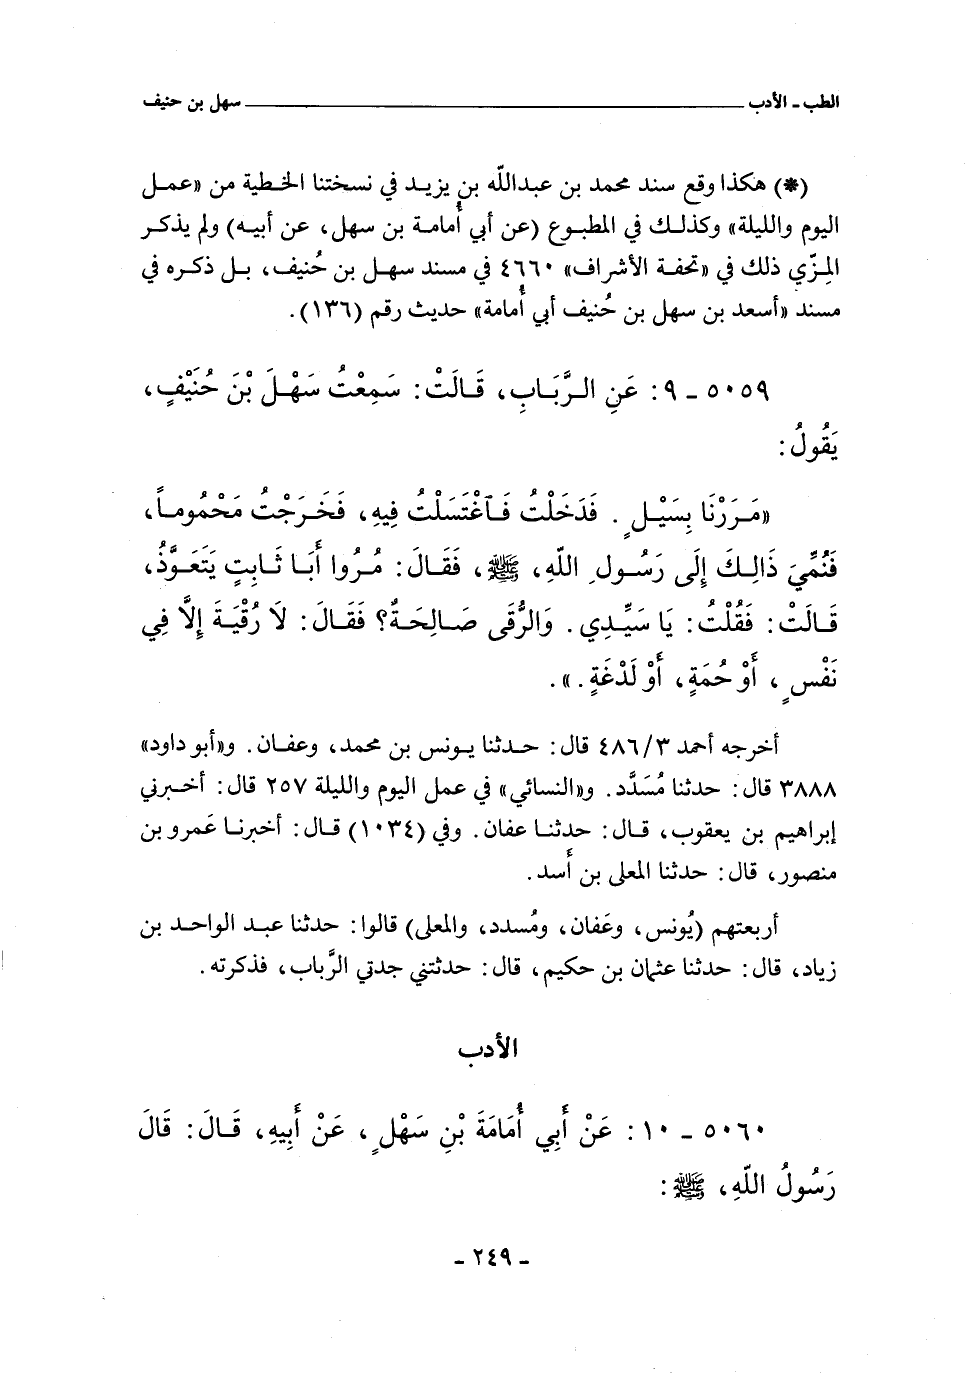 الطب ـ الأدب ـــــــــــــــــــــــــــــــــــــــــ سهل بن حنيف
(*) هكذا وقع سند محمد بن عبدالله بن يزيد في نسختنا الخطية من «عمل
اليوم والليلة» وكذلك في المطبوع (عن أبي أُمامة بن سهل، عن أبيه) ولم يذكر
المِزّي ذلك في «تحفة الأشراف» ٤٦٦٠ في مسند سهل بن حُنيف، بل ذكره في
مسند «أسعد بن سهل بن حُنيف أبي أُمامة» حديث رقم (١٣٦).
٥٠٥٩ ـ ٩: عَنِ الرَّبَابِ، قَالَتْ: سَمِعْتُ سَهْلَ بْنَ حُنَيْفٍ،
يَقُولُ:
«مَرَرْنَا بِسَيْلٍ. فَدَخَلْتُ فَاغْتَسَلْتُ فِيهِ، فَخَرَجْتُ مَحْمُوماً،
فَنُمِّيَ ذَالِكَ إِلَى رَسُولِ اللّهِ، ﷺ، فَقَالَ: مُرُوا أَبَا ثَابِتٍ يَتَعَوَّذُ،
قَالَتْ: فَقُلْتُ: يَا سَيِّدِي. وَالرُّقَى صَالِحَةٌ؟ فَقَالَ: لَا رُقْيَةَ إِلَّا فِي
نَفْسٍ، أَوْ حُمَةٍ، أَوْ لَدْغَةٍ.».
أخرجه أحمد ٤٨٦/٣ قال: حدثنا يونس بن محمد، وعفان. و«أبو داود»
٣٨٨٨ قال: حدثنا مُسَدَّد. و«النسائي» في عمل اليوم والليلة ٢٥٧ قال: أخبرني
إبراهيم بن يعقوب، قال: حدثنا عفان. وفي (١٠٣٤) قال: أخبرنا عَمرو بن
منصور، قال: حدثنا المعلى بن أَسد.
أربعتهم (يُونس، وعَفان، ومُسدد، والمعلى) قالوا: حدثنا عبد الواحد بن
زياد، قال: حدثنا عثمان بن حكيم، قال: حدثتني جدتي الرَّباب، فذكرته.
الأدب
٥٠٦٠ ـ ١٠: عَنْ أَبِي أُمَامَةَ بْنِ سَهْلٍ، عَنْ أَبِيهِ، قَالَ: قَالَ
رَسُولُ اللّهِ، ﷺ:
ـ ٢٤٩ ـ